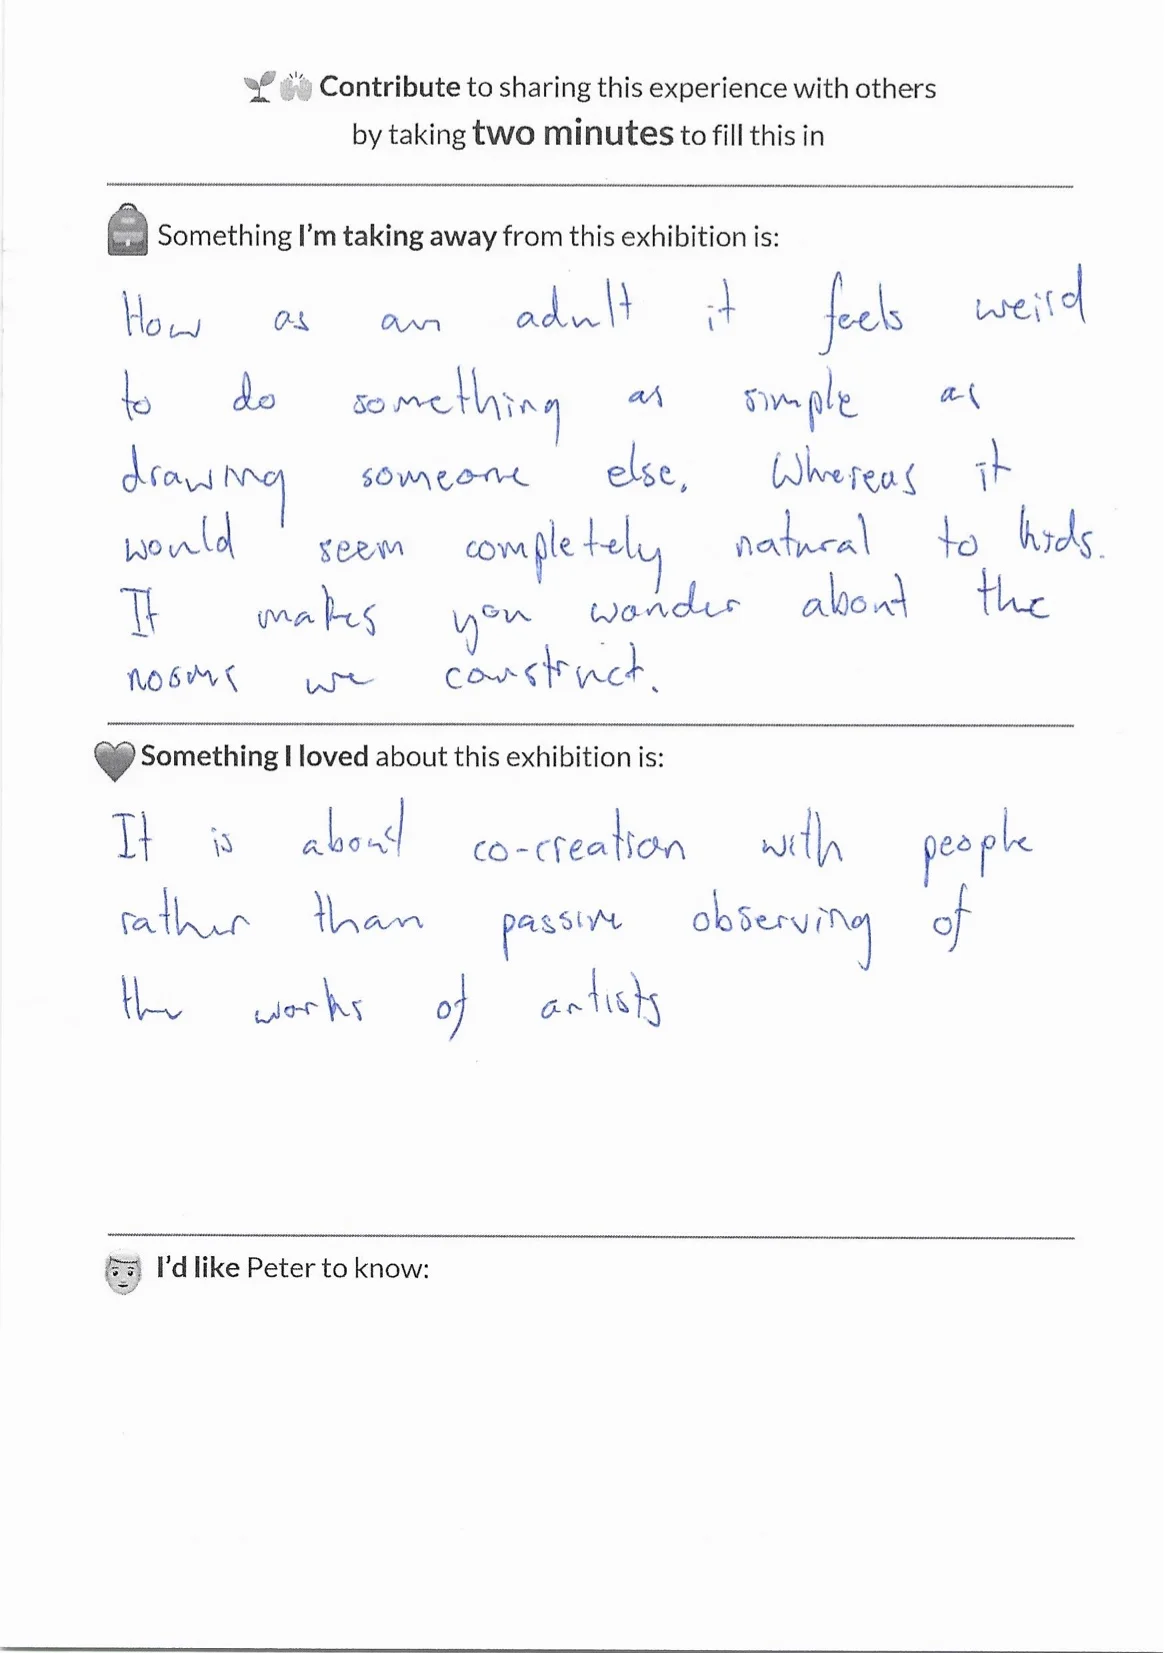 Contribute to sharing this experience with others
by taking two minutes to fill this in
Something I'm taking away from this exhibition is:
How as an adult it feels weird
to do something as simple as
drawing someone else. Whereas it
would seem completely natural to kids.
It makes you wonder about the
norms we construct.
Something I loved about this exhibition is:
It is about co-creation with people
rather than passive observing of
the works of artists
I'd like Peter to know: